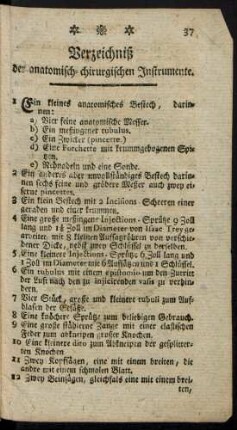 37
Verzeichniß
der anatomisch-chirurgischen Instrumente.
1 Ein kleines anatomisches Besteck, darin-
nen:
a) Vier feine anatomische Messer.
b) Ein meßingener tubulus.
c) Ein Zwicker (pincette.)
d) Eine Forchette mit krummgebogenen Spi-
tzen.
e) Hechnadeln und eine Sonde.
2 Ein anderes aber unvollständiges Besteck darin-
nen sechs feine und größere Messer auch zwey ei-
serne pincettes.
3 Ein klein Besteck mit 2 Incisions-Scheeren einer
geraden und einer krummen.
4 Eine große meßingene Injections-Sprütze 9 Zoll
lang und 18 Zoll im Diameter von Isaac Troyge-
arbeitet, mit 8 kleinen Aufsatzröhren von verschie-
dener Dicke, nebst zwey Schlüssel zu derselben.
5 Eine kleinere Injections-Sprütze 6 Zoll lang und
1 Zoll im Diameter mit 6 Aufsätzen und 1 Schlüssel.
6 Ein tubulus mit einem epistomio um den Zutritt
der Luft nach den zu injicirenden vasis zu verhin-
dern.
7 Vier Stück, große und kleinere tubuli zum Auf-
blasen der Gefäße.
8 Eine knöcherne Sprütze zum beliebigen Gebrauch.
9 Eine große stählerne Zange mit einer elastischen
Feder zum abkneipen großer Knochen.
10 Eine kleinere dito zum Abkneipen der gesplitter-
ten Knochen
11 Zwey Kopfsägen, eine mit einem breiten, die
andre mit einem schmalen Blatt.
12 Zwey Beinsägen, gleichfals eine mit einem brei-
ten,